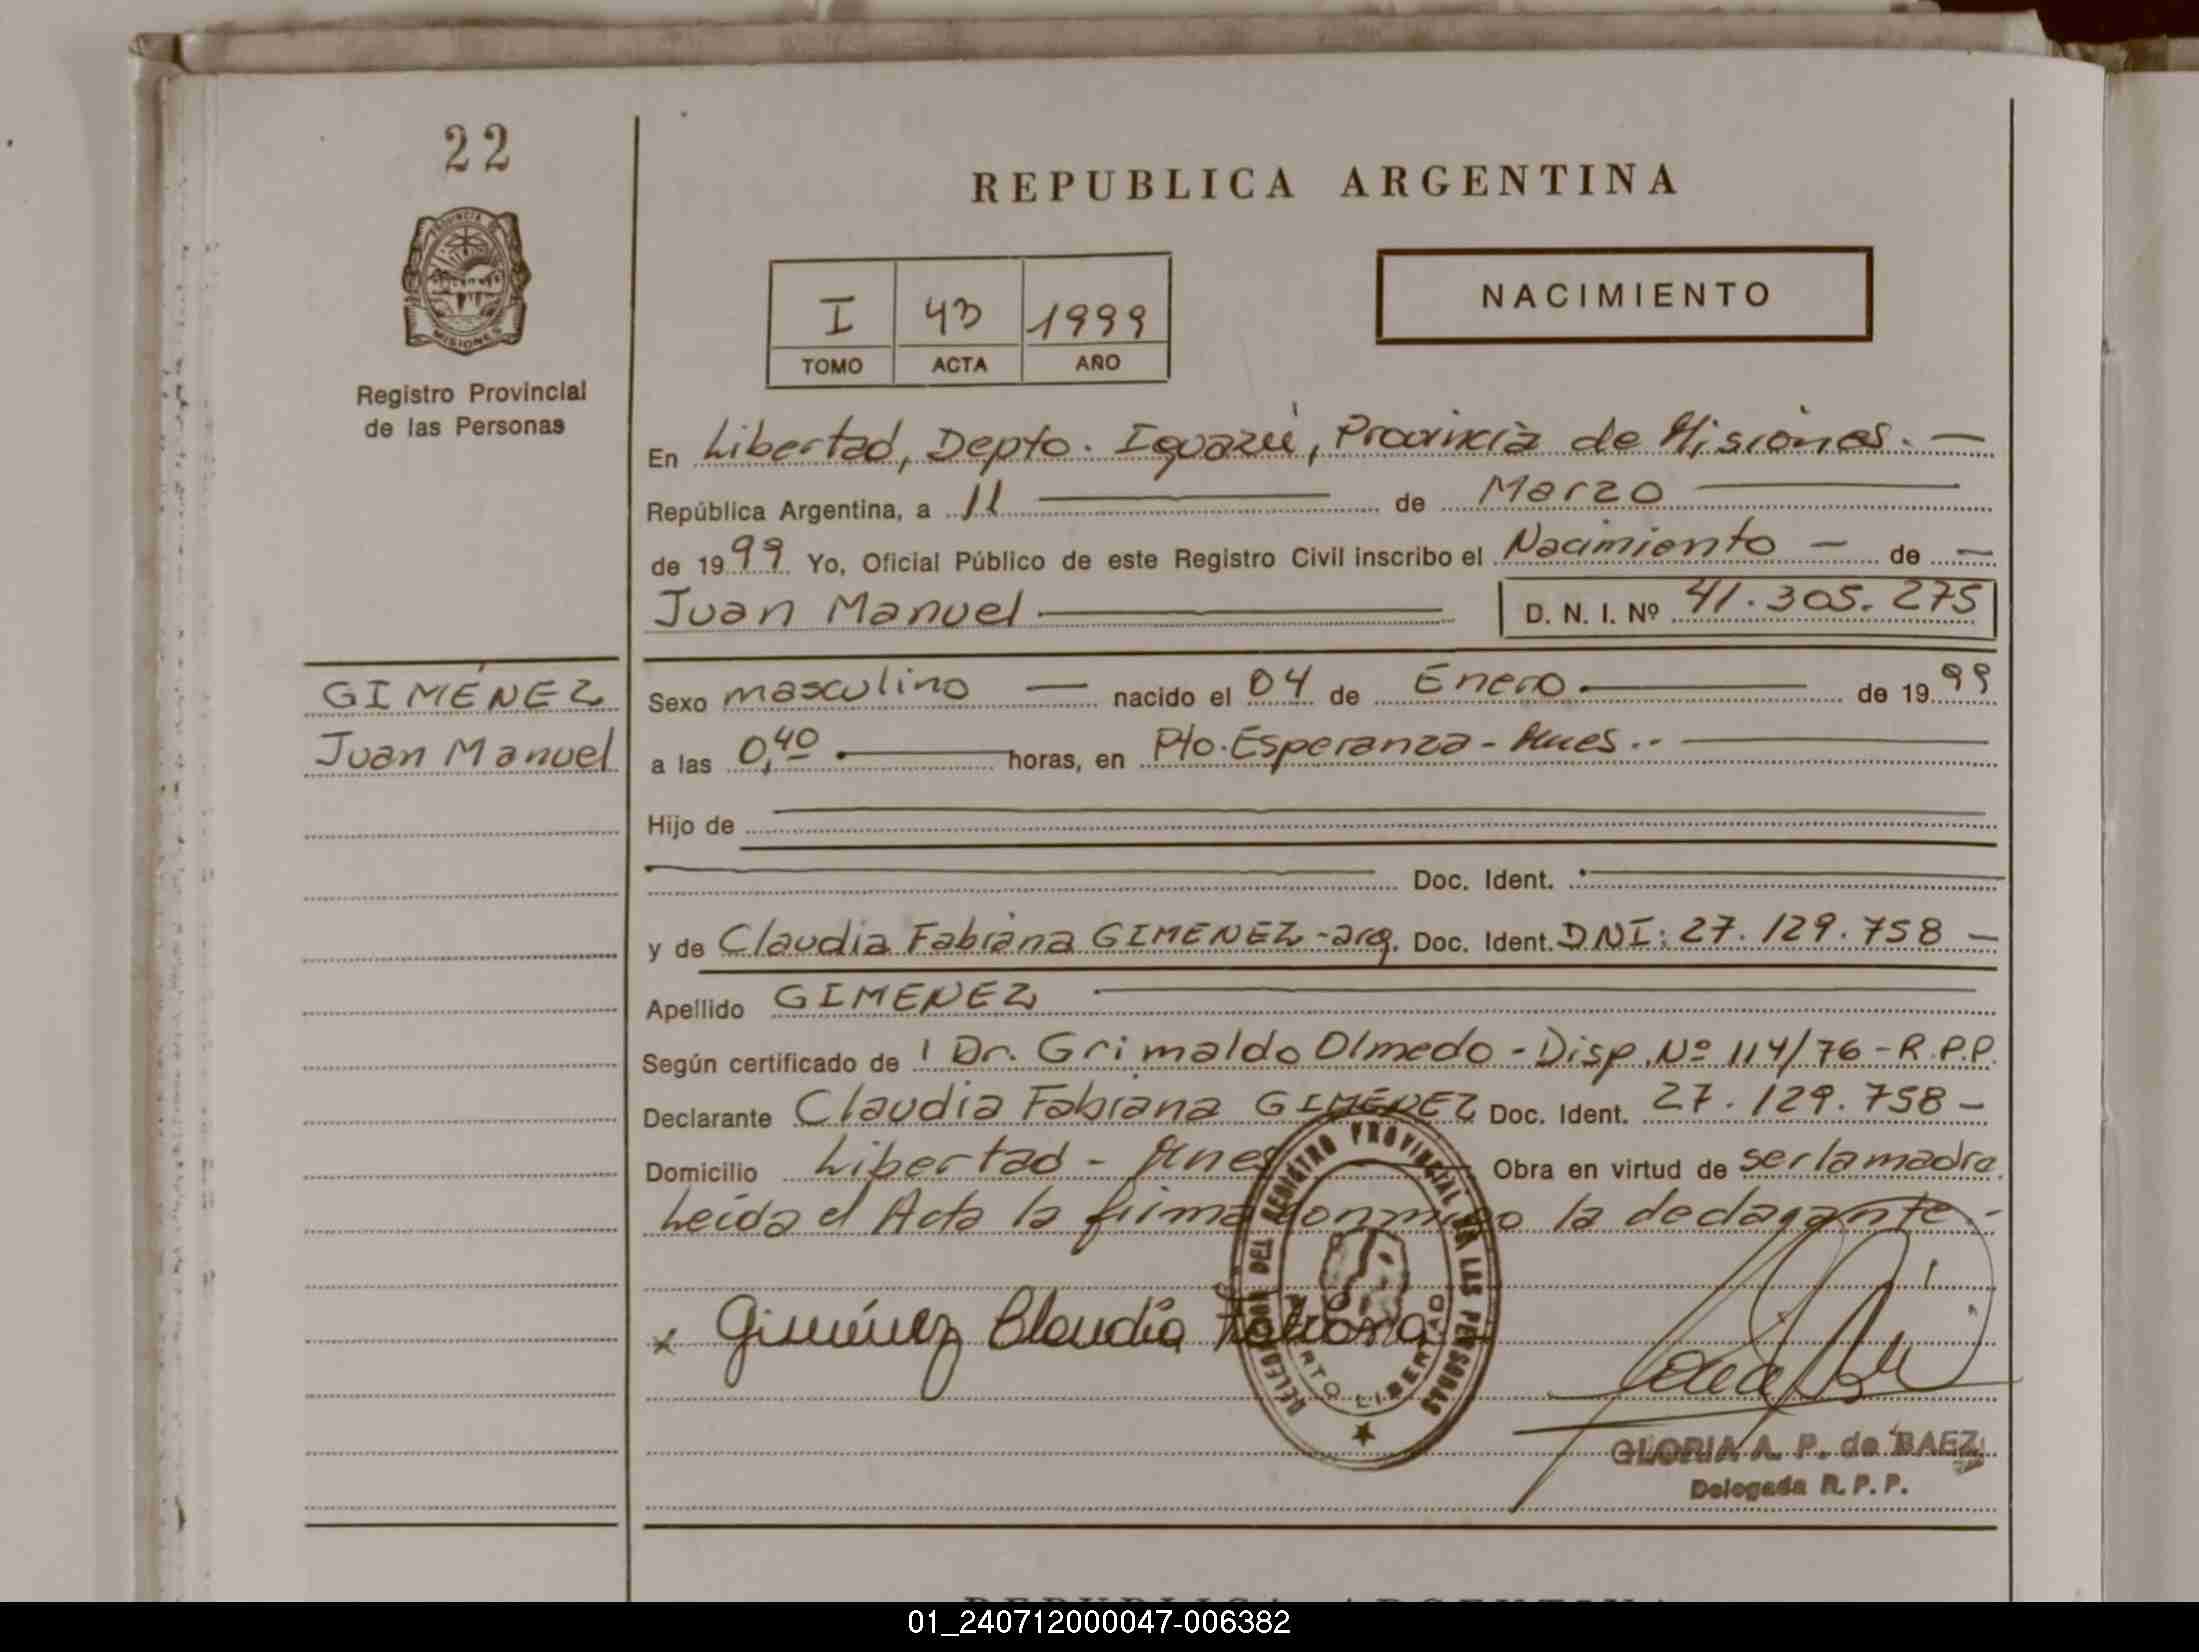 22
REPUBLICA ARGENTINA
PROVINCIA DE MISIONES
I 43 1999
TOMO ACTA AÑO
NACIMIENTO
Registro Provincial
de las Personas
En Libertad, Depto. Iguazú, Provincia de Misiones. —
República Argentina, a 11 — de Marzo —
de 1999 Yo, Oficial Público de este Registro Civil inscribo el Nacimiento — de —
Juan Manuel — D. N. I. Nº 41.305.275
GIMÉNEZ
Juan Manuel
Sexo masculino — nacido el 04 de Enero — de 1999
a las 0,40 — horas, en Pto. Esperanza - Mnes.. —
Hijo de —
— Doc. Ident. —
y de Claudia Fabiana GIMENEZ - arg. Doc. Ident. DNI: 27.129.758 —
Apellido GIMENEZ —
Según certificado de Dr. Grimaldo Olmedo - Disp. Nº 114/76 - R.P.P.
Declarante Claudia Fabiana GIMÉNEZ Doc. Ident. 27.129.758 —
Domicilio Libertad - Mnes — Obra en virtud de ser la madre.
Leída el Acta la firma conmigo la declarante. -
DELEGACION DEL REGISTRO PROVINCIAL DE LAS PERSONAS
PUERTO LIBERTAD
x Giménez Claudia Fabiana
GLORIA A. P. de BAEZ
Delegada R. P. P.
REPUBLICA ARGENTINA
01_240712000047-006382